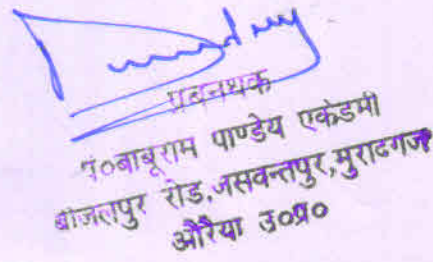 प्रबन्धक
पं०बाबूराम पाण्डेय एकेडमी
बीजलपुर रोड,जसवन्तपुर,मुरादगंज
औरैया उ०प्र०